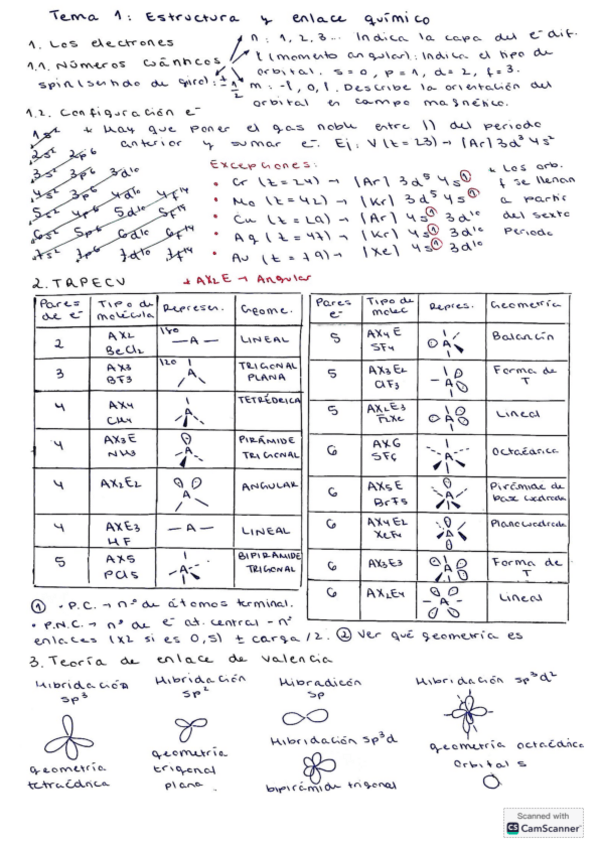 Tema 1: Estructura y enlace químico
1. Los electrones
n: 1, 2, 3... Indica la capa del e- dif.
1.1. Números cuánticos
l (momento angular): Indica el tipo de
orbital. s=0, p=1, d=2, f=3.
spin (sentido de giro): ± 1/2
m: -l, 0, l. Describe la orientación del
orbital en campo magnético.
1.2. Configuración e-
1s2
* Hay que poner el gas noble entre [] del periodo
anterior y sumar e-. Ej: V (Z=23) → [Ar] 3d3 4s2
2s2 2p6
3s2 3p6 3d10
4s2 4p6 4d10 4f14
5s2 5p6 5d10 5f14
6s2 6p6 6d10 6f14
7s2 7p6 7d10 7f14
Excepciones:
• Cr (Z=24) → [Ar] 3d5 4s1
• Mo (Z=42) → [Kr] 3d5 4s1
• Cu (Z=29) → [Ar] 4s1 3d10
• Ag (Z=47) → [Kr] 4s1 3d10
• Au (Z=79) → [Xe] 4s1 3d10
* Los orb.
f se llenan
a partir
del sexto
periodo
2. TRPECV
* AX2E → Angular
Pares de e- Tipo de molécula Represen. Geome.
2 AX2 BeCl2 180 —A— LINEAL
3 AX3 BF3 120 A TRIGONAL PLANA
4 AX4 CH4 A TETRÉDRICA
4 AX3E NH3 A PIRÁMIDE TRIGONAL
4 AX2E2 A ANGULAR
4 AXE3 HF —A— LINEAL
5 AX5 PCl5 A BIPIRAMIDE TRIGONAL
Pares e- Tipo de molec Repres. Geometría
5 AX4E SF4 A Balancín
5 AX3E2 ClF3 A Forma de T
5 AX2E3 F2Xe A Lineal
6 AX6 SF6 A Octaédrica
6 AX5E BrF5 A Pirámide de base cuadrada
6 AX4E2 XeF4 A Plano cuadrada
6 AX3E3 A Forma de T
6 AX2E4 A Lineal
① • P.C. → nº de átomos terminal.
• P.N.C. → nº de e- at. central - nº
enlaces (x2 si es O,S) ± carga /2. ② Ver qué geometría es
3. Teoría de enlace de valencia
Hibridación sp3
geometría
tetraédrica
Hibridación sp2
geometría
trigonal
plana
Hibradicón sp
Hibridación sp3d
bipirámide trigonal
Hibridación sp3d2
geometría octaédrica
orbital s
Scanned with
CS CamScanner